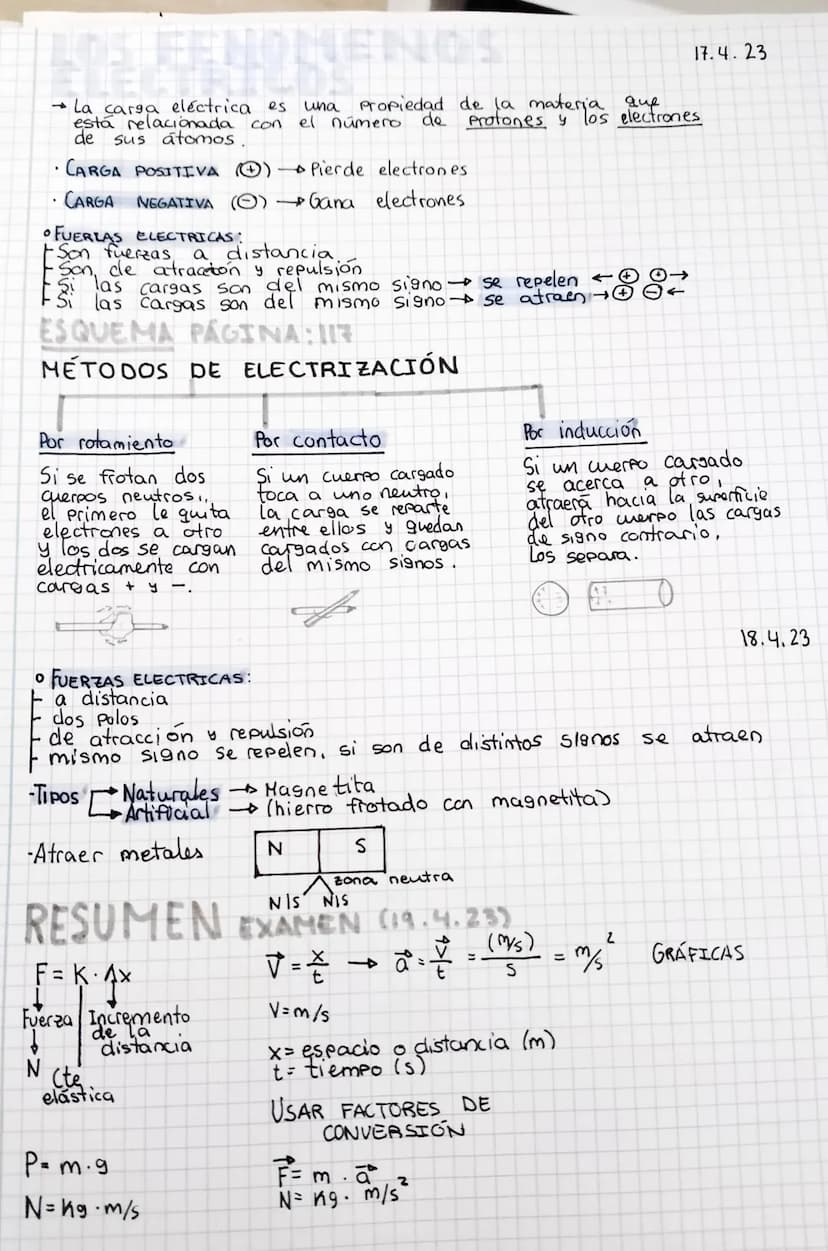 LOS FENOMENOS
ELÉCTRICOS
17.4.23
→ La carga eléctrica es una propiedad de la materia que
está relacionada con el número de protones y los electrones
de sus átomos.
· CARGA POSITIVA (+) → Pierde electrones
· CARGA NEGATIVA (-) → Gana electrones
° FUERZAS ELECTRICAS:
Son fuerzas a distancia.
Son, de atracción y repulsión
Si las cargas son del mismo signo → se repelen ← + + →
Si las cargas son del mismo signo → se atraen → + - ←
ESQUEMA PÁGINA: 117
MÉTODOS DE ELECTRIZACIÓN
Por rotamiento
Si se frotan dos
cuerpos neutros,
el primero le quita
electrones a otro
y los dos se cargan
electricamente con
cargas + y -.
Por contacto
Si un cuerpo cargado
toca a uno neutro,
la carga se reparte
entre ellos y quedan
cargados con cargas
del mismo signos.
Por inducción
Si un cuerpo cargado
se acerca a otro,
atraerá hacia la superficie
del otro cuerpo las cargas
de signo contrario,
los separa.
18.4.23
° FUERZAS ELECTRICAS:
a distancia
dos polos
de atracción y repulsión
mismo signo se repelen, si son de distintos signos se atraen
-TIPOS → Naturales → Magnetita
→ Artificial → (hierro frotado con magnetita)
-Atraer metales
N S
zona neutra
N|S N|S
RESUMEN EXAMEN (19.4.23)
F = K · Δx
Fuerza
Incremento
de la
distancia
N
Cte
elástica
P = m·g
N = Kg · m/s
V = x/t → a = V/t = (m/s)/s = m/s² GRÁFICAS
V = m/s
x = espacio o distancia (m)
t = tiempo (s)
USAR FACTORES DE
CONVERSIÓN
F = m · a
N = Kg · m/s²